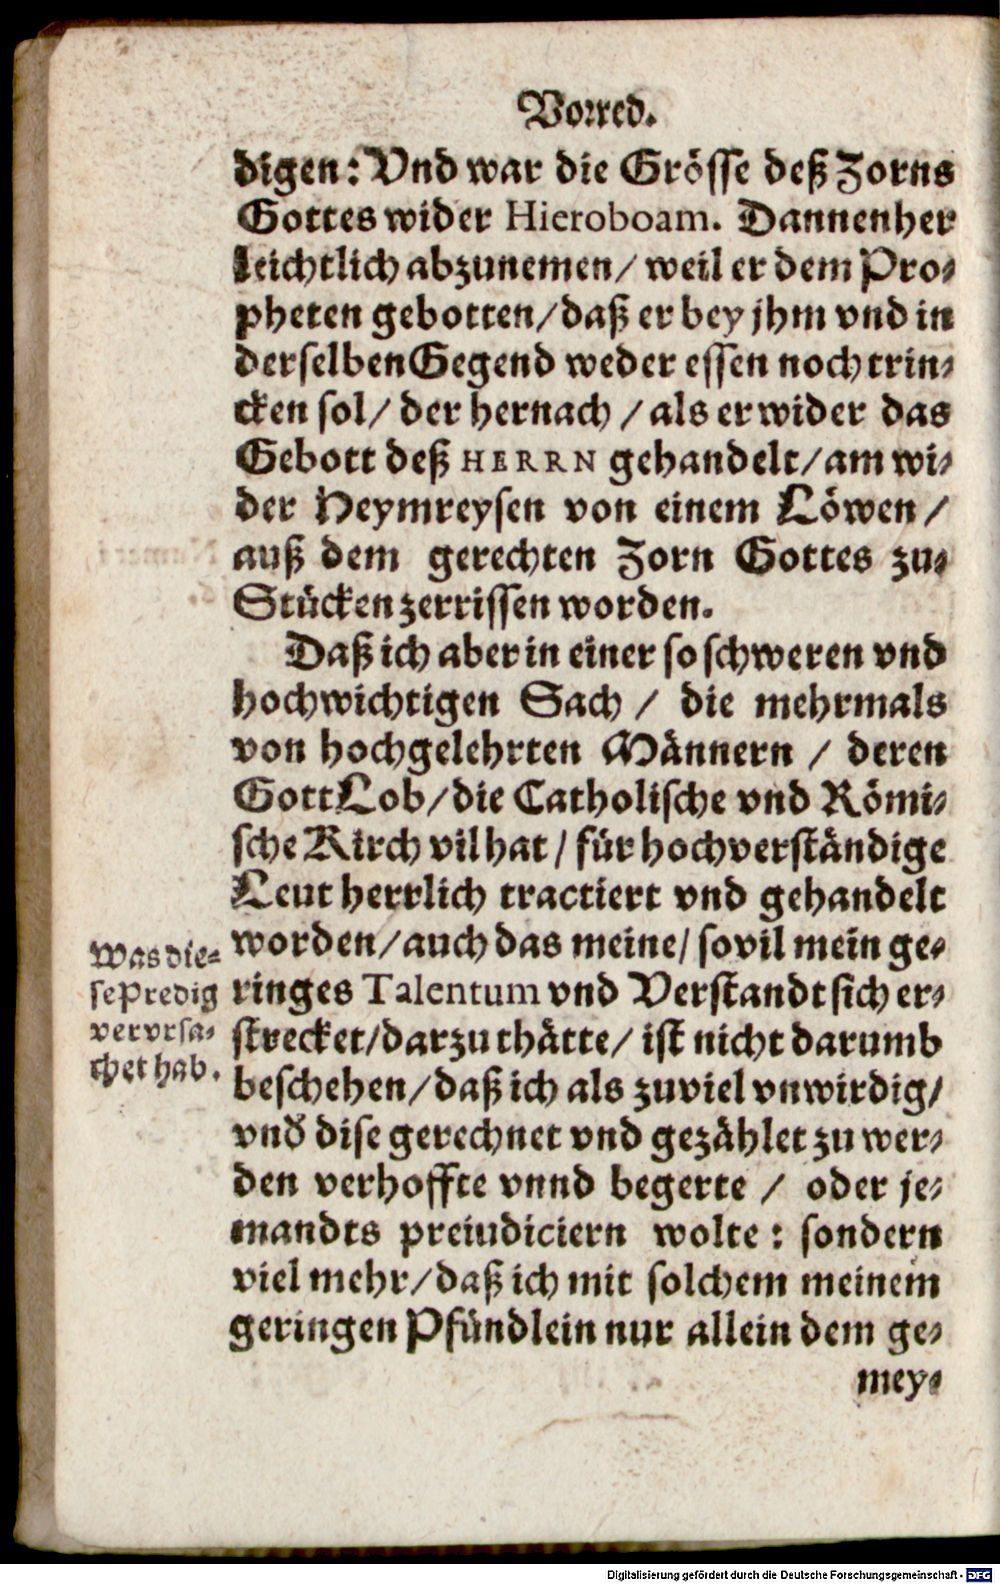 Vorred.
digen: Vnd war die Grösse deß Zorns
Gottes wider Hieroboam. Dannenher
leichtlich abzunemen/ weil er dem Pro-
pheten gebotten/ daß er bey jhm vnd in
derselben Gegend weder essen noch trin-
cken sol/ der hernach / als er wider das
Gebott deß HERRN gehandelt/ am wi-
der Heymreysen von einem Löwen /
auß dem gerechten Zorn Gottes zu-
Stücken zerrissen worden.
Daß ich aber in einer so schweren vnd
hochwichtigen Sach / die mehrmals
von hochgelehrten Männern / deren
Gott Lob/ die Catholische vnd Römi-
sche Kirch vil hat / für hochverständige
Leut herrlich tractiert vnd gehandelt
worden/ auch das meine/ sovil mein ge-
ringes Talentum vnd Verstandt sich er-
strecket/ darzu thätte/ ist nicht darumb
beschehen/ daß ich als zuviel vnwirdig/
vnd dise gerechnet vnd gezählet zu wer-
den verhoffte vnnd begerte / oder je-
mandts preiudiciern wolte : sondern
viel mehr/ daß ich mit solchem meinem
geringen Pfündlein nur allein dem ge-
mey-
Was die-
se Predig
vervrsa-
chet hab.
Digitalisierung gefördert durch die Deutsche Forschungsgemeinschaft - DFG